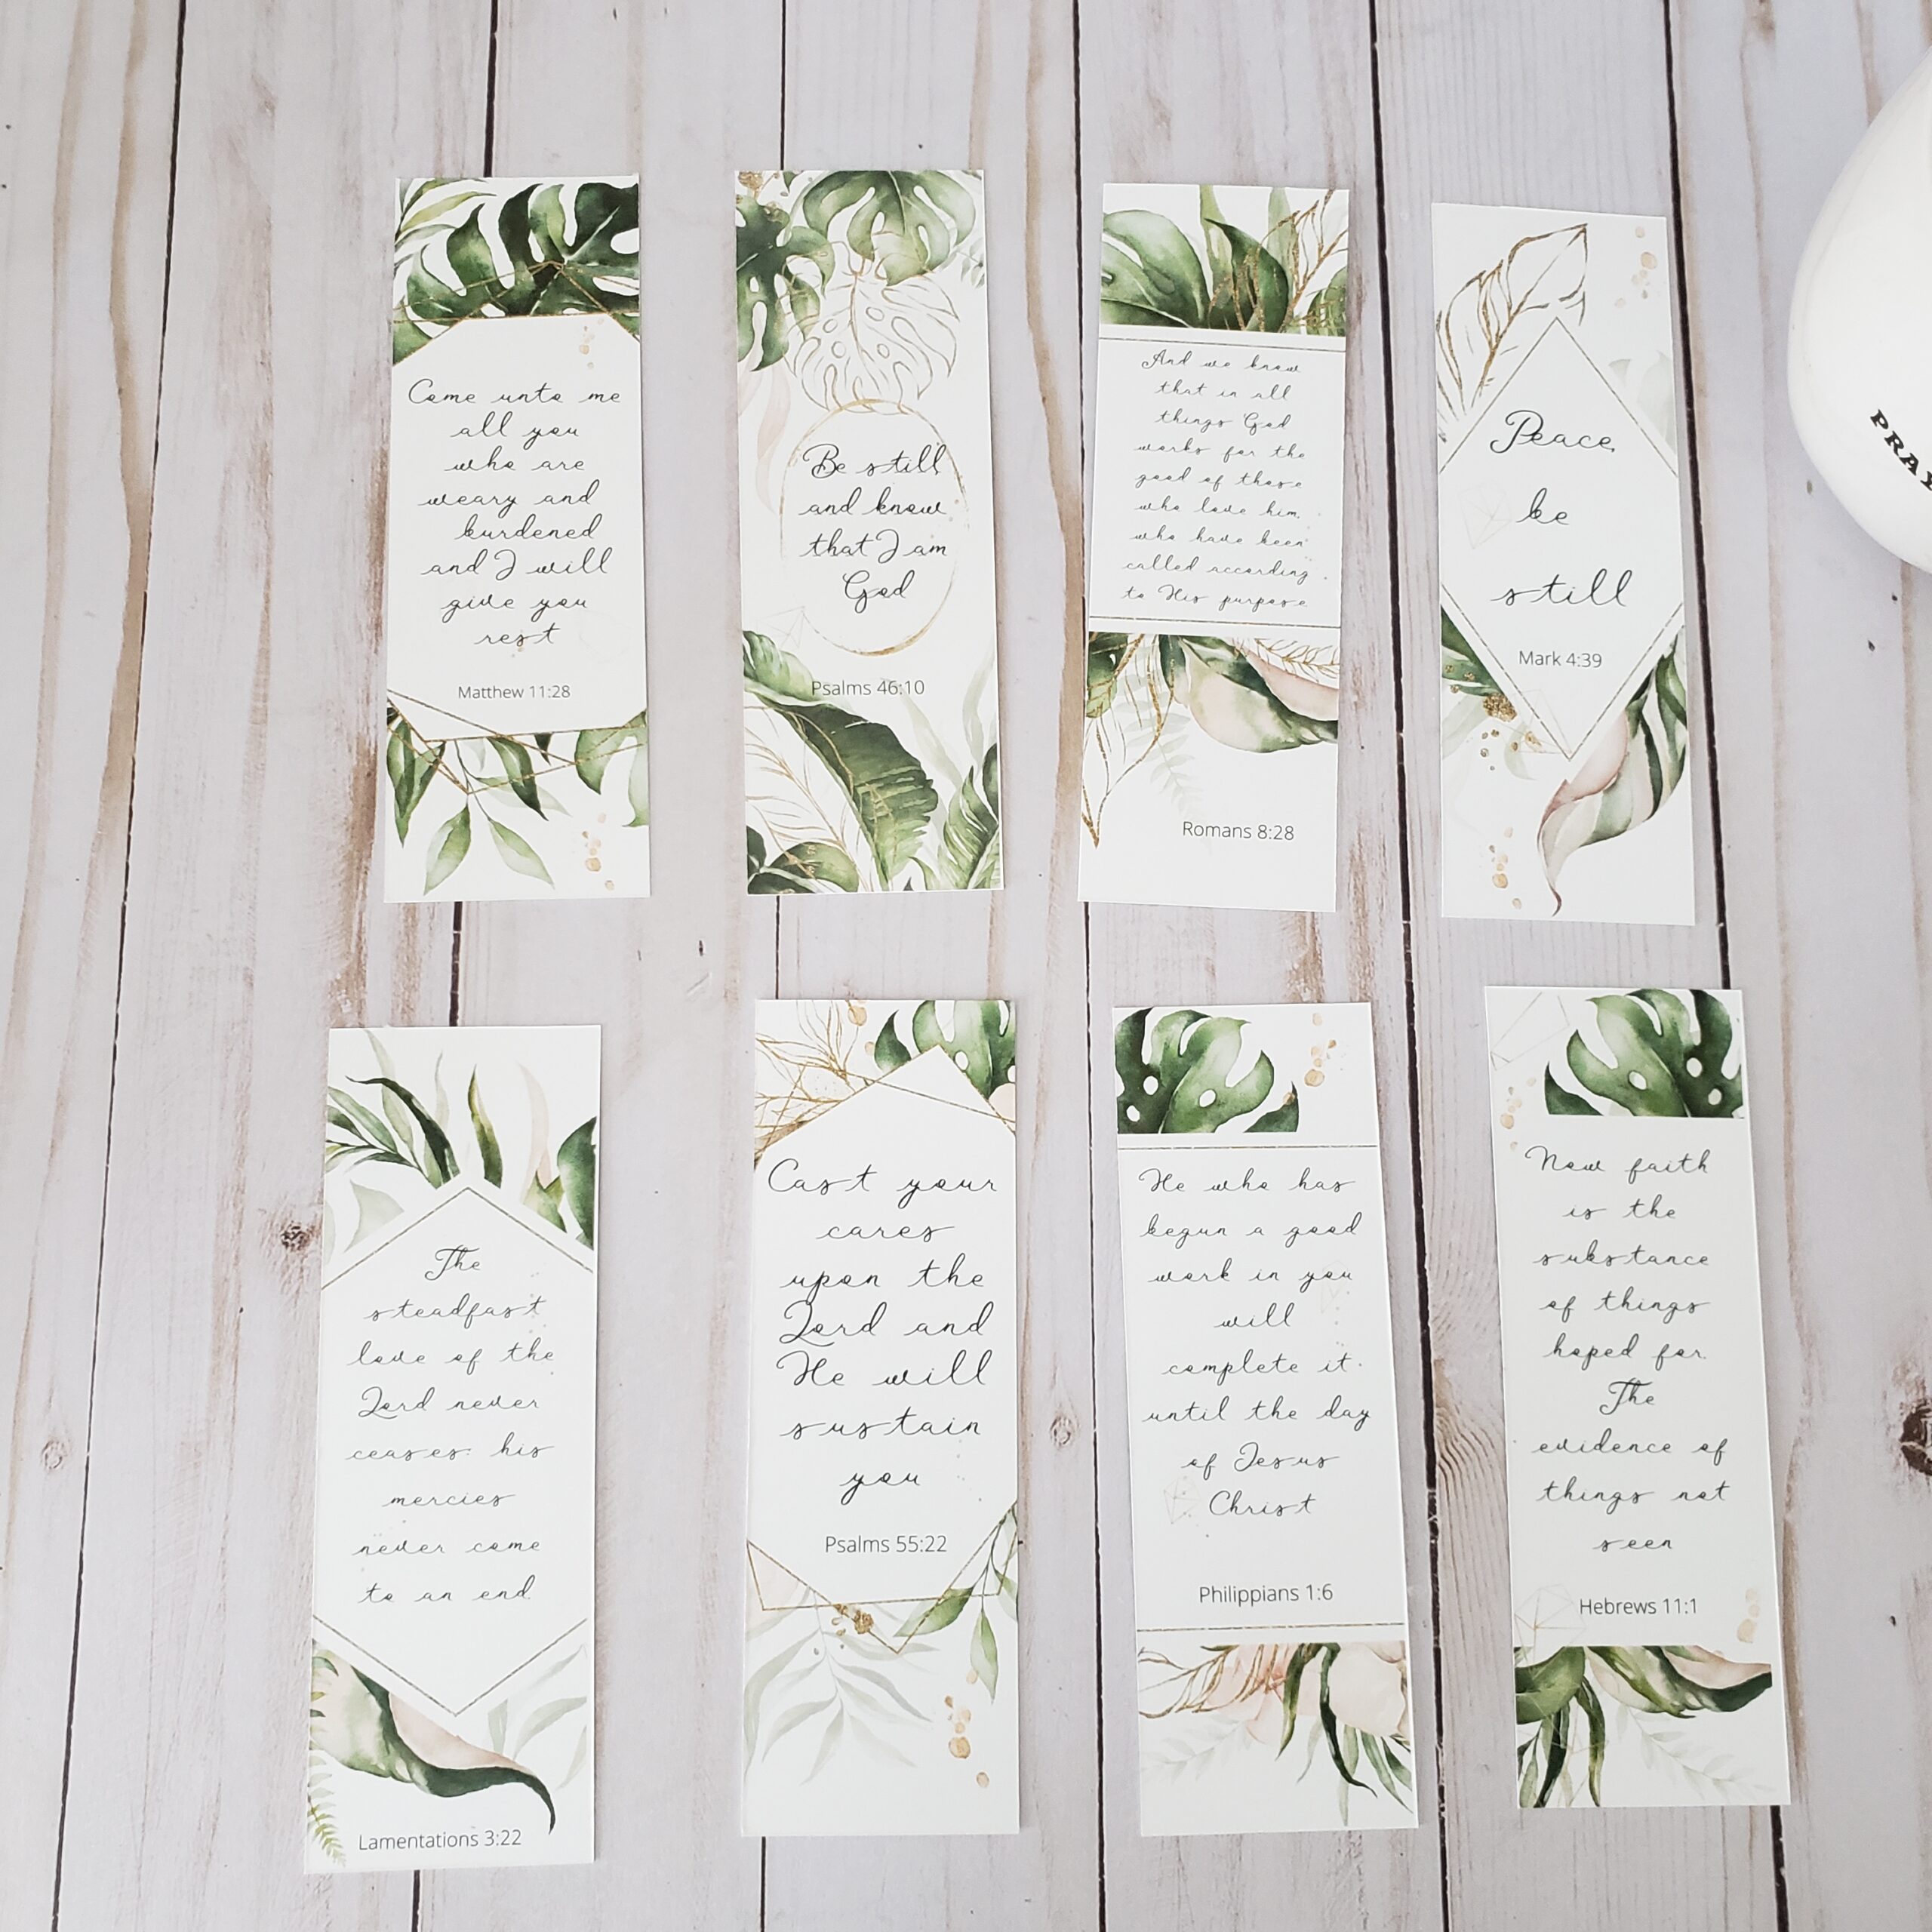 Come unto me
all you
who are
weary and
burdened
and I will
give you
rest
Matthew 11:28
Be still
and know
that I am
God
Psalms 46:10
And we know
that in all
things God
works for the
good of those
who love him,
who have been
called according
to His purpose.
Romans 8:28
Peace,
be
still
Mark 4:39
PRAY
The
steadfast
love of the
Lord never
ceases; his
mercies
never come
to an end.
Lamentations 3:22
Cast your
cares
upon the
Lord and
He will
sustain
you
Psalms 55:22
He who has
begun a good
work in you
will
complete it
until the day
of Jesus
Christ
Philippians 1:6
Now faith
is the
substance
of things
hoped for.
The
evidence of
things not
seen
Hebrews 11:1